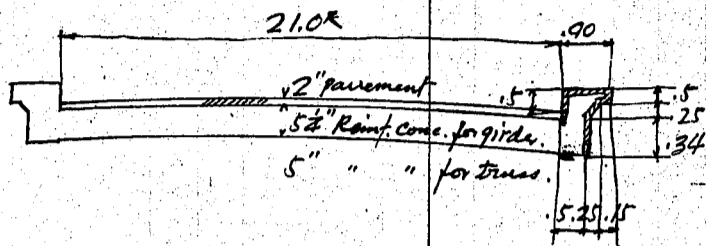 21.0R
.90
2" pavement
.5
.5
5¼" Reinf. conc. for girder.
.25
5" " " for truss.
.34
.5 .25 .15